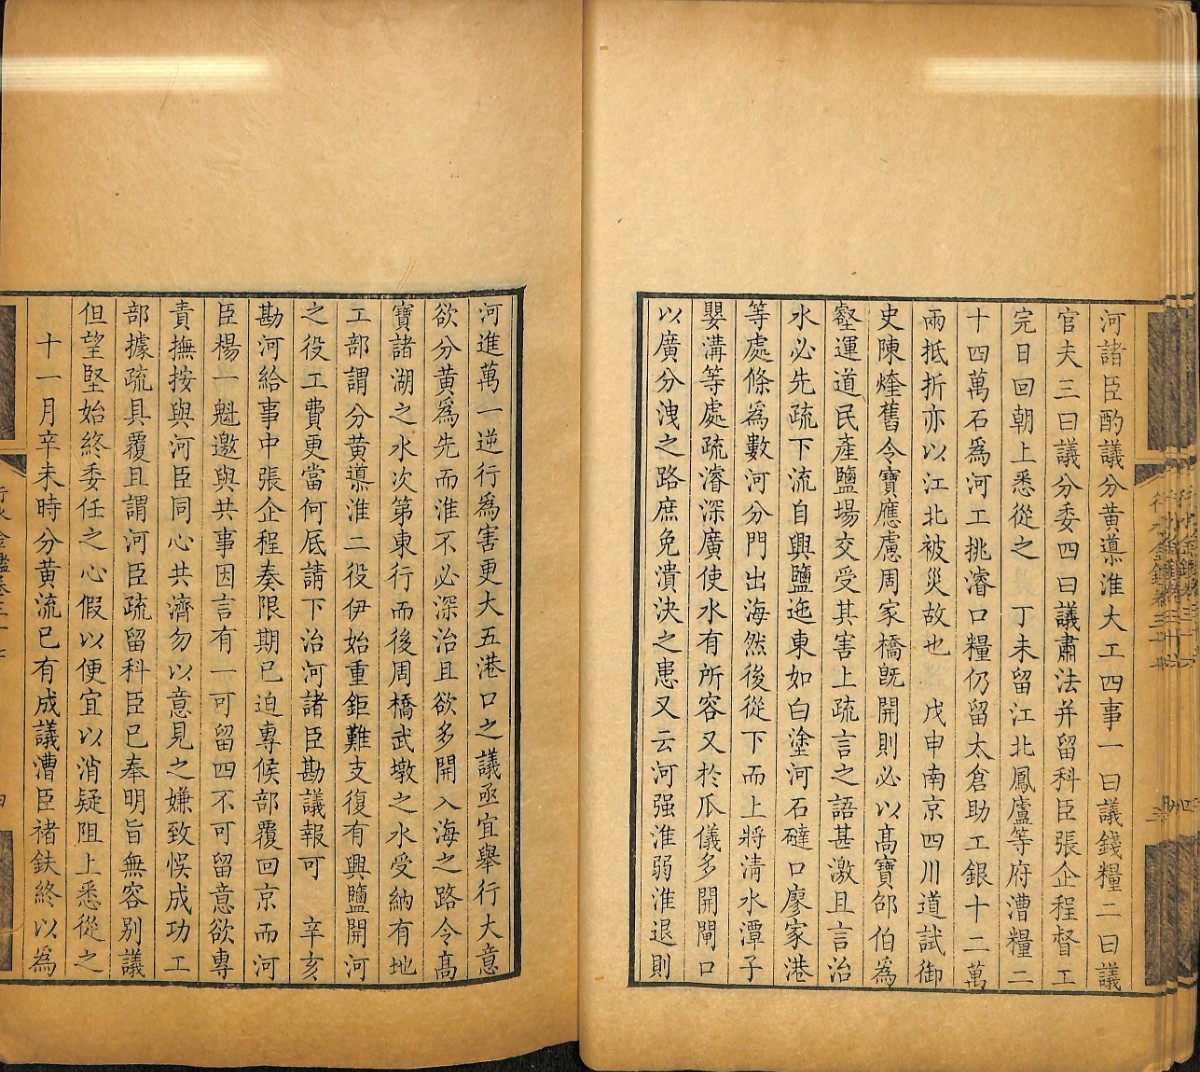 河諸臣酌議分黄導淮大工四事一曰議錢糧二曰議
官夫三曰議分委四曰議肅法并留科臣張企程督工
完日回朝上悉從之　丁未留江北鳳廬等府漕糧二
十四萬石爲河工挑濬口糧仍留太倉助工銀十二萬
兩抵折亦以江北被災故也　戊申南京四川道試御
史陳煃舊令寶應慮周家橋旣開則必以髙寶邵伯爲
壑運道民產鹽場交受其害上疏言之語甚激且言治
水必先疏下流自興鹽迤東如白塗河石䃮口廖家港
等處條爲數河分門出海然後從下而上將清水潭子
嬰溝等處疏濬深廣使水有所容又於瓜儀多開閘口
以廣分洩之路庶免潰決之患又云河强淮弱淮退則
河進萬一逆行爲害更大五港口之議亟宜舉行大意
欲分黄爲先而淮不必深治且欲多開入海之路令髙
寶諸湖之水次第東行而後周橋武墩之水受納有地
工部謂分黄導淮二役伊始重鉅難支復有興鹽開河
之役工費更當何厎請下治河諸臣勘議報可　辛亥
勘河給事中張企程奏限期已迫專候部覆回京而河
臣楊一魁邀與共事因言有一可留四不可留意欲專
責撫按與河臣同心共濟勿以意見之嫌致悞成功工
部據疏具覆且謂河臣疏留科臣已奉明旨無容别議
但望堅始終委任之心假以便宜以消疑阻上悉從之
十一月辛未時分黄流已有成議漕臣禇鈇終以爲